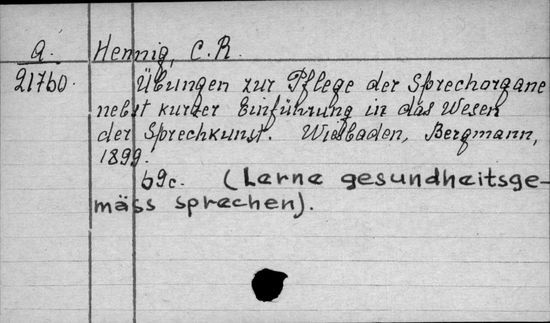 a. Hennig, C.R.
21760. Übungen zur Pflege der Sprechorgane
nebst kurzer Einführung in das Wesen
der Sprechkunst. Wiesbaden, Bergmann,
1899.
69c. (Lerne gesundheitsge-
mäss sprechen).